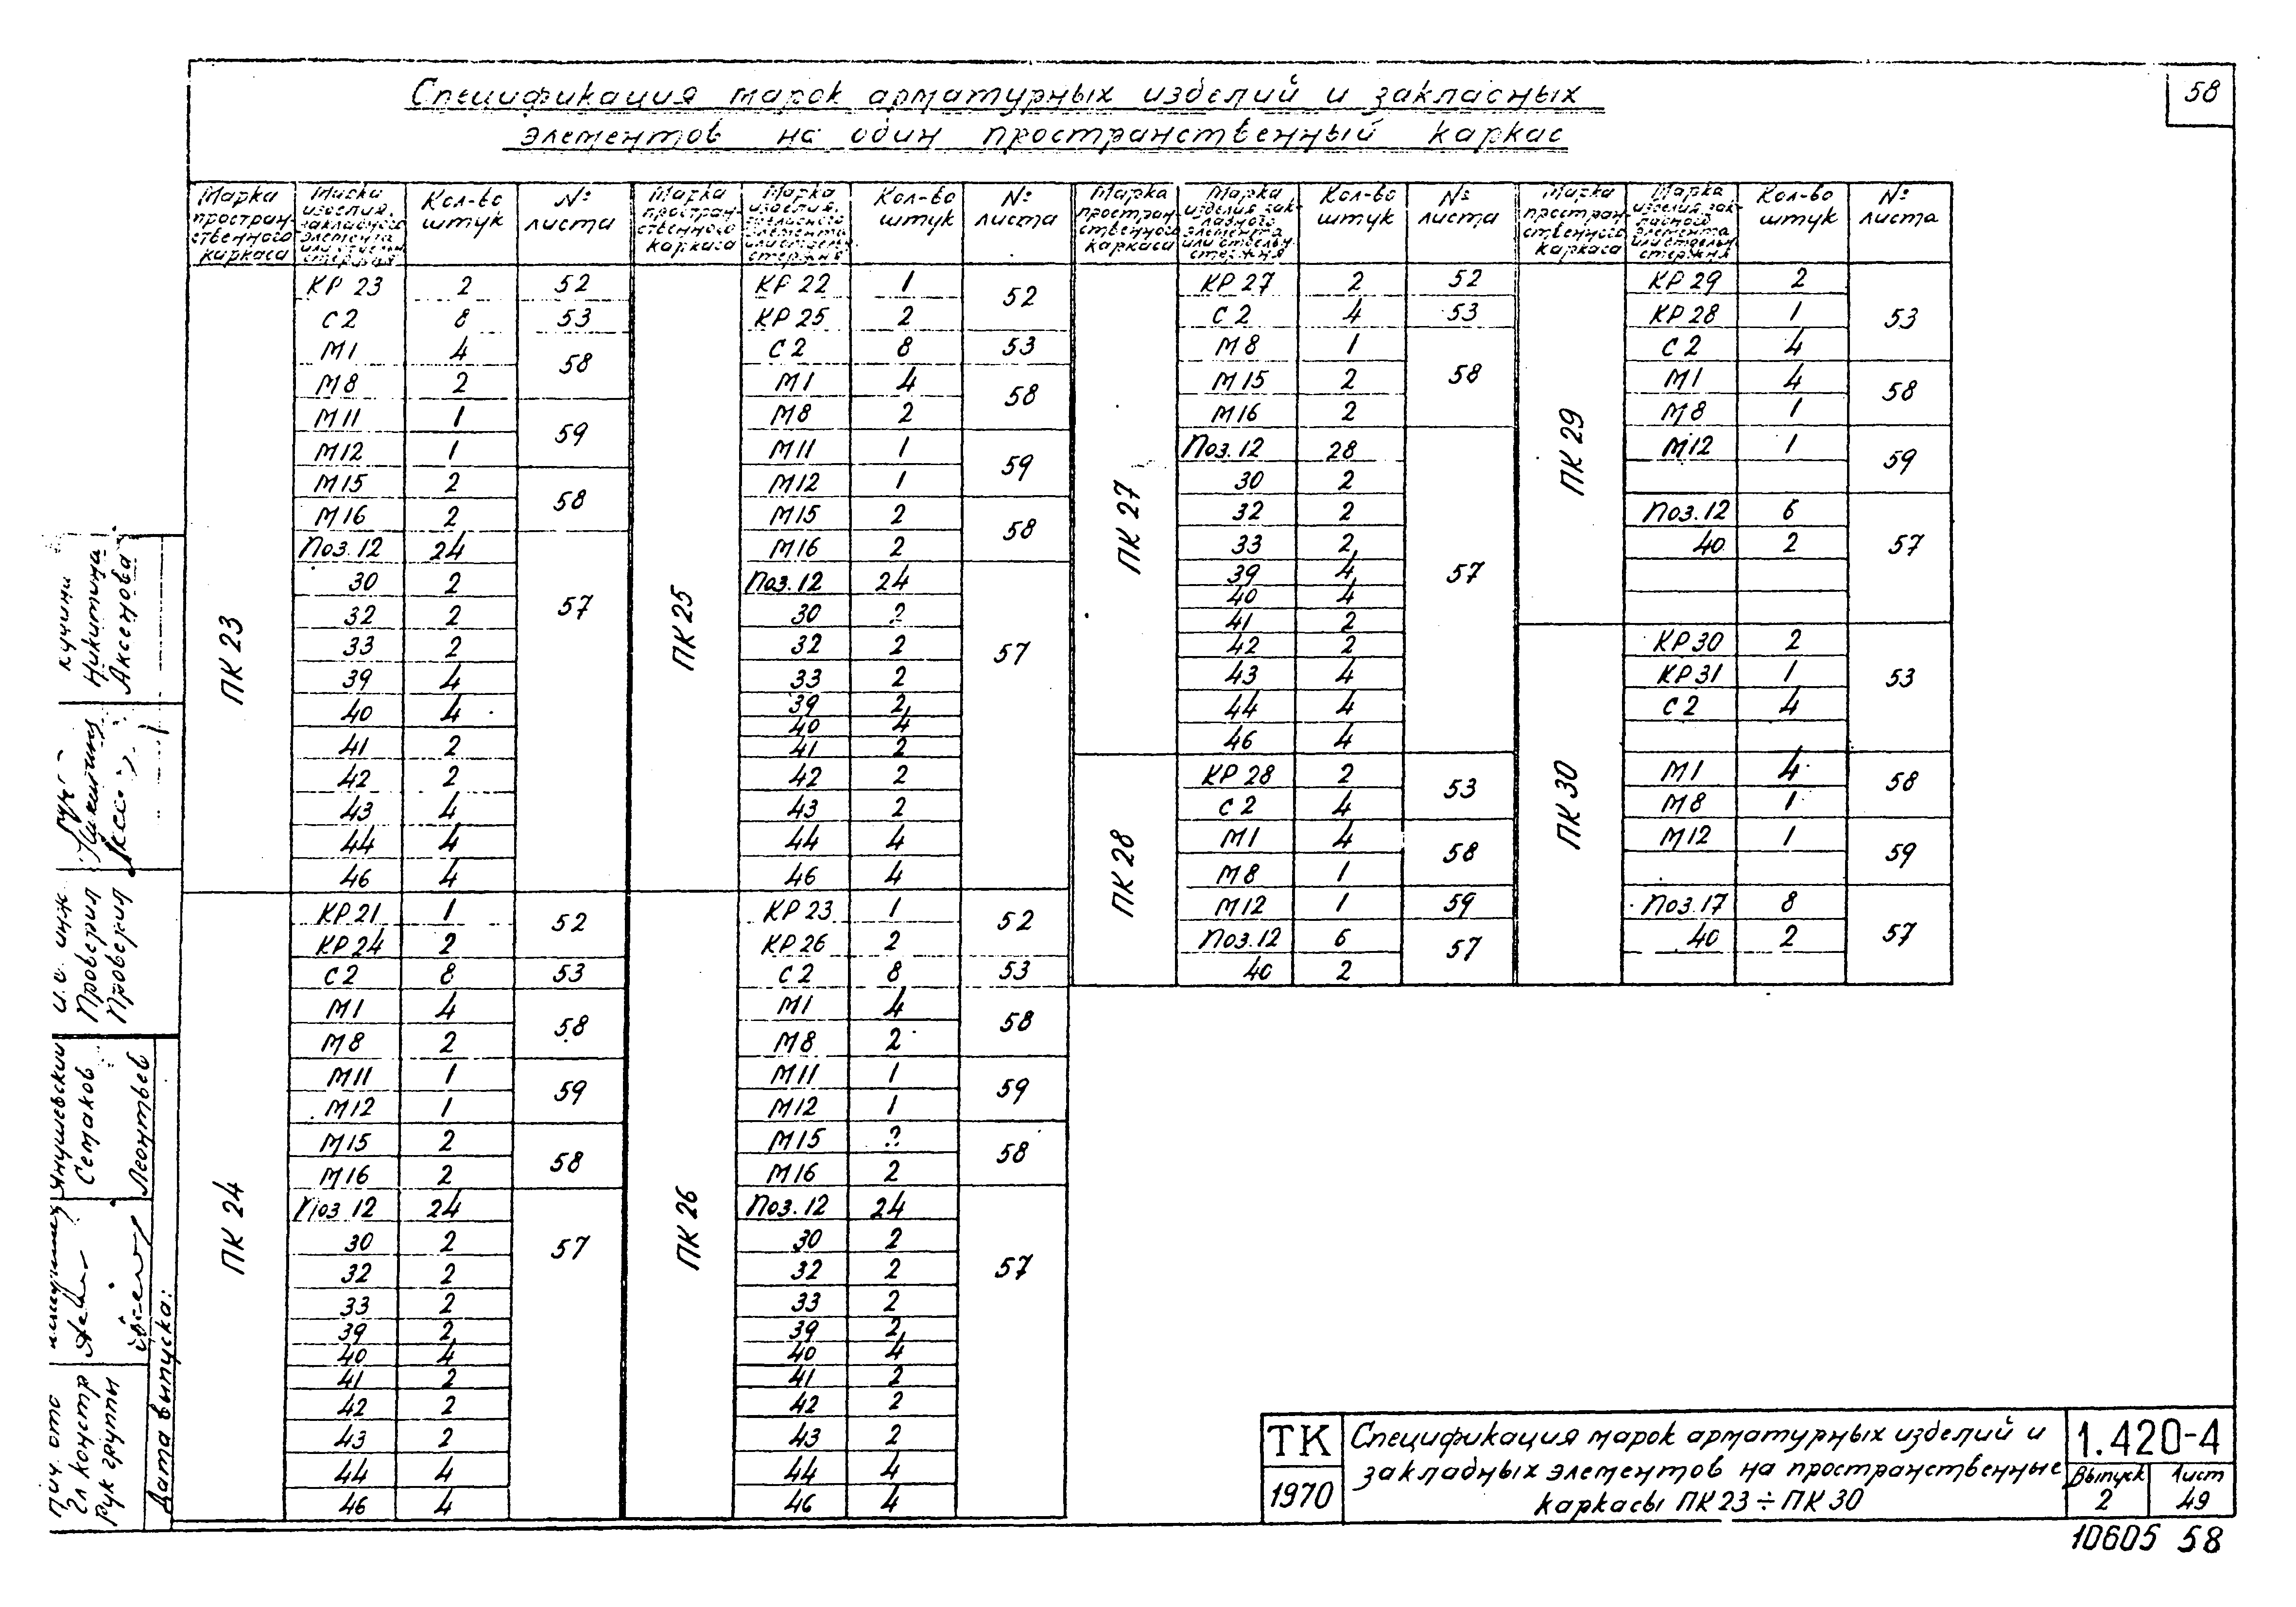 58
Спецификация марок арматурных изделий и закладных
элементов на один пространственный каркас
Марка пространственного каркаса | Марка изделия, закладного элемента или отдельн. стержня | Кол-во штук | № листа
ПК 23
КР 23 2 52
С 2 8 53
М 1 4 58
М 8 2
М 11 1 59
М 12 1
М 15 2 58
М 16 2
Поз. 12 24 57
30 2
32 2
33 2
39 4
40 4
41 2
42 2
43 4
44 4
46 4
ПК 24
КР 21 1 52
КР 24 2
С 2 8 53
М 1 4 58
М 8 2
М 11 1 59
М 12 1
М 15 2 58
М 16 2
Поз. 12 24 57
30 2
32 2
33 2
39 2
40 4
41 2
42 2
43 2
44 4
46 4
Марка пространственного каркаса | Марка изделия, закладного элемента или отдельн. стержня | Кол-во штук | № листа
ПК 25
КР 22 1 52
КР 25 2
С 2 8 53
М 1 4 58
М 8 2
М 11 1 59
М 12 1
М 15 2 58
М 16 2
Поз. 12 24 57
30 2
32 2
33 2
39 2
40 4
41 2
42 2
43 2
44 4
46 4
ПК 26
КР 23 1 52
КР 26 2
С 2 8 53
М 1 4 58
М 8 2
М 11 1 59
М 12 1
М 15 2 58
М 16 2
Поз. 12 24 57
30 2
32 2
33 2
39 2
40 4
41 2
42 2
43 2
44 4
46 4
Марка пространственного каркаса | Марка изделия закладного элемента или отдельн. стержня | Кол-во штук | № листа
ПК 27
КР 27 2 52
С 2 4 53
М 8 1 58
М 15 2
М 16 2
Поз. 12 28 57
30 2
32 2
33 2
39 4
40 4
41 2
42 2
43 4
44 4
46 4
ПК 28
КР 28 2 53
С 2 4
М 1 4 58
М 8 1
М 12 1 59
Поз. 12 6 57
40 2
Марка пространственного каркаса | Марка изделия закладного элемента или отдельн. стержня | Кол-во штук | № листа
ПК 29
КР 29 2 53
КР 28 1
С 2 4
М 1 4 58
М 8 1
М 12 1 59
Поз. 12 6 57
40 2
ПК 30
КР 30 2 53
КР 31 1
С 2 4
М 1 4 58
М 8 1
М 12 1 59
Поз. 17 8 57
40 2
Никитина
Аксенова
Проверил
Проверил
Янушевский
Семаков
Леонтьев
Гл констр
Рук группы
Дата выпуска:
ТК
1970
Спецификация марок арматурных изделий и
закладных элементов на пространственные
каркасы ПК 23 ÷ ПК 30
1.420-4
Выпуск 2
Лист 49
10605 58